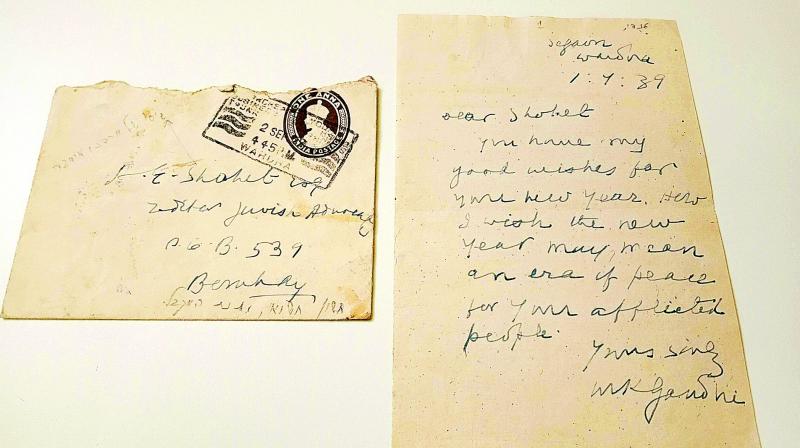 ONE ANNA
INDIA POSTAGE
2 SEP
4 45 PM
WARDHA
A. E. Shohet Esq
Editor Jewish Advocate
P.O.B. 539
Bombay
Segaon
Wardha
1.9.39
Dear Shohet
You have my
good wishes for
your new year. How
I wish the new
year may mean
an era of peace
for your afflicted
people.
Yours sincly
MKGandhi